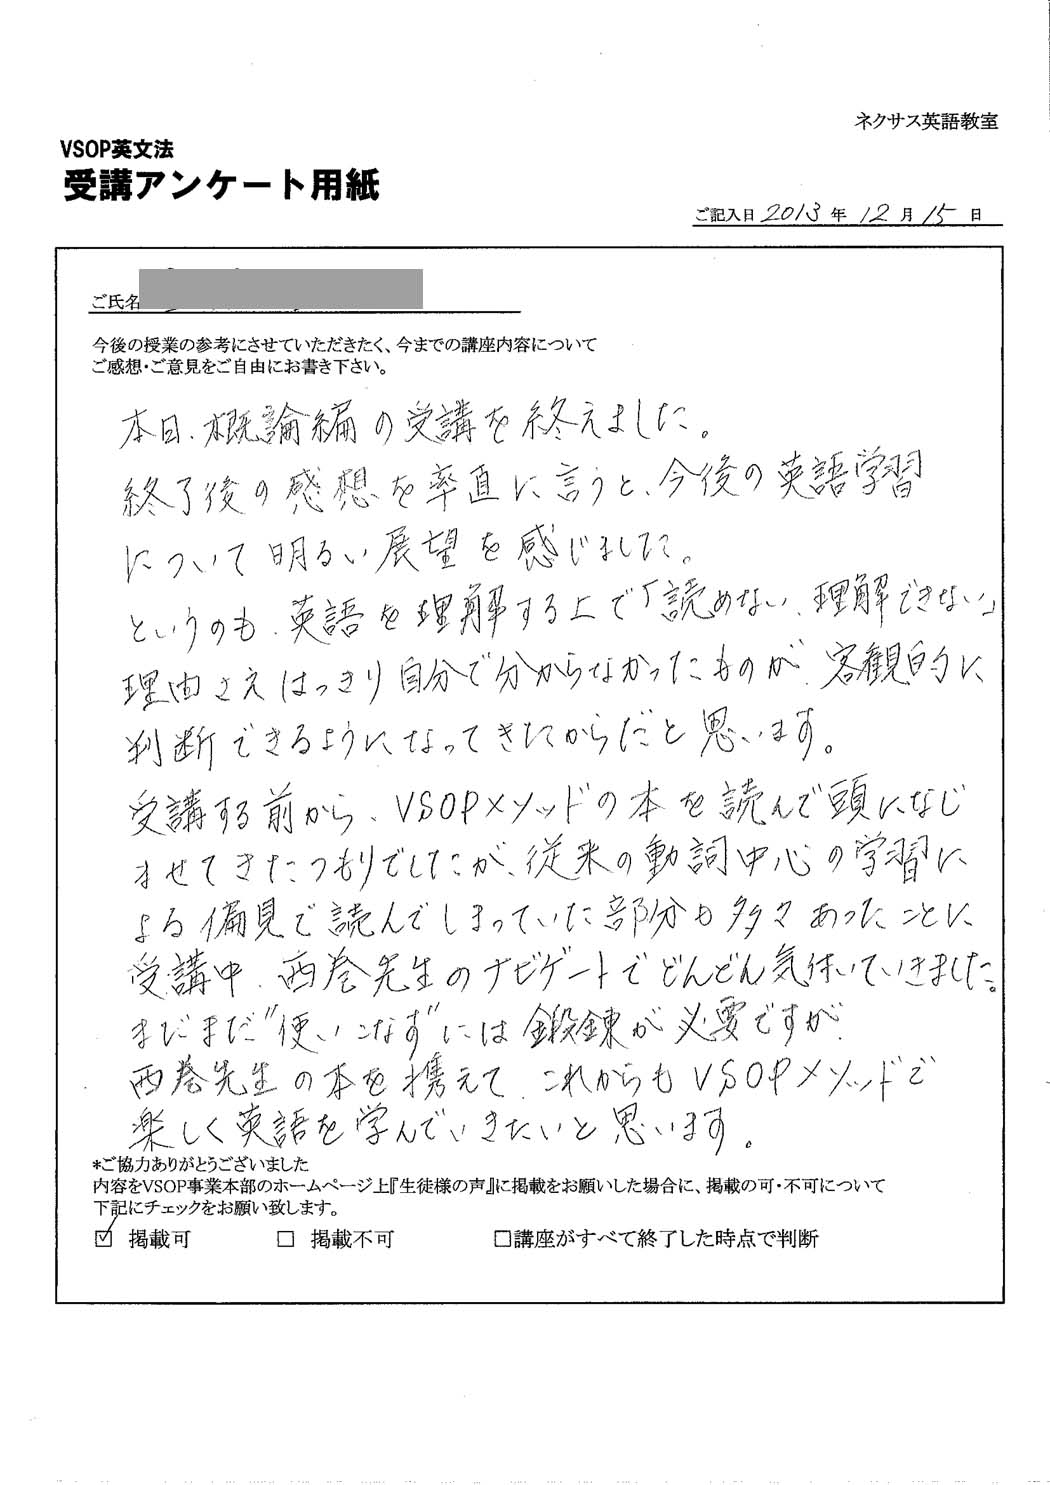 ネクサス英語教室
VSOP英文法
受講アンケート用紙
ご記入日 2013 年 12 月 15 日
ご氏名
今後の授業の参考にさせていただきたく、今までの講座内容について
ご感想・ご意見をご自由にお書き下さい。
本日、概論編の受講を終えました。
終了後の感想を率直に言うと、今後の英語学習
について明るい展望を感じました。
というのも、英語を理解する上で「読めない、理解できない」
理由さえはっきり自分で分からなかったものが、客観的に
判断できるようになってきたからだと思います。
受講する前から、VSOPメソッドの本を読んで頭になじ
ませてきたつもりでしたが、従来の動詞中心の学習に
よる偏見で読んでしまっていた部分も多々あったことに
受講中、西巻先生のナビゲートでどんどん気付いていきました。
まだまだ"使いこなす"には鍛錬が必要ですが、
西巻先生の本を携えて、これからもVSOPメソッドで
楽しく英語を学んでいきたいと思います。
*ご協力ありがとうございました
内容をVSOP事業本部のホームページ上『生徒様の声』に掲載をお願いした場合に、掲載の可・不可について
下記にチェックをお願い致します。
☑ 掲載可 □ 掲載不可 □講座がすべて終了した時点で判断